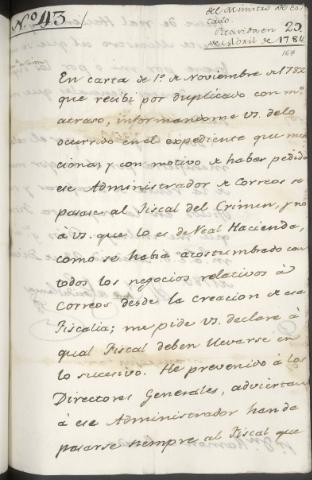 N.º 43
del Ministro
25
de Abril de 1784
En carta de 1.º de Noviembre de 1782
que recibí por duplicado con m.º
atraso, informandome VS. de lo
ocurrido en el expediente que men
cionas y con motivo de haber pedido
ese Administrador de Correos se
pasase al Fiscal del Crimen, y no
à VS. que lo es de Real Hacienda,
como se habia acostumbrado con
todos los negocios relativos à
Correos desde la creacion de esa
Fiscalia; me pide VS. declare à
qual Fiscal deben llevarse en
lo sucesivo. He prevenido à los
Directores Generales, adviertan
à ese Administrador han de
pasarse siempre al Fiscal que